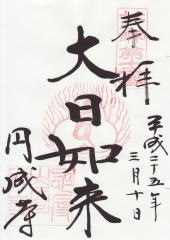 奉拝
平成二十五年
三月十日
大日如来
円成寺